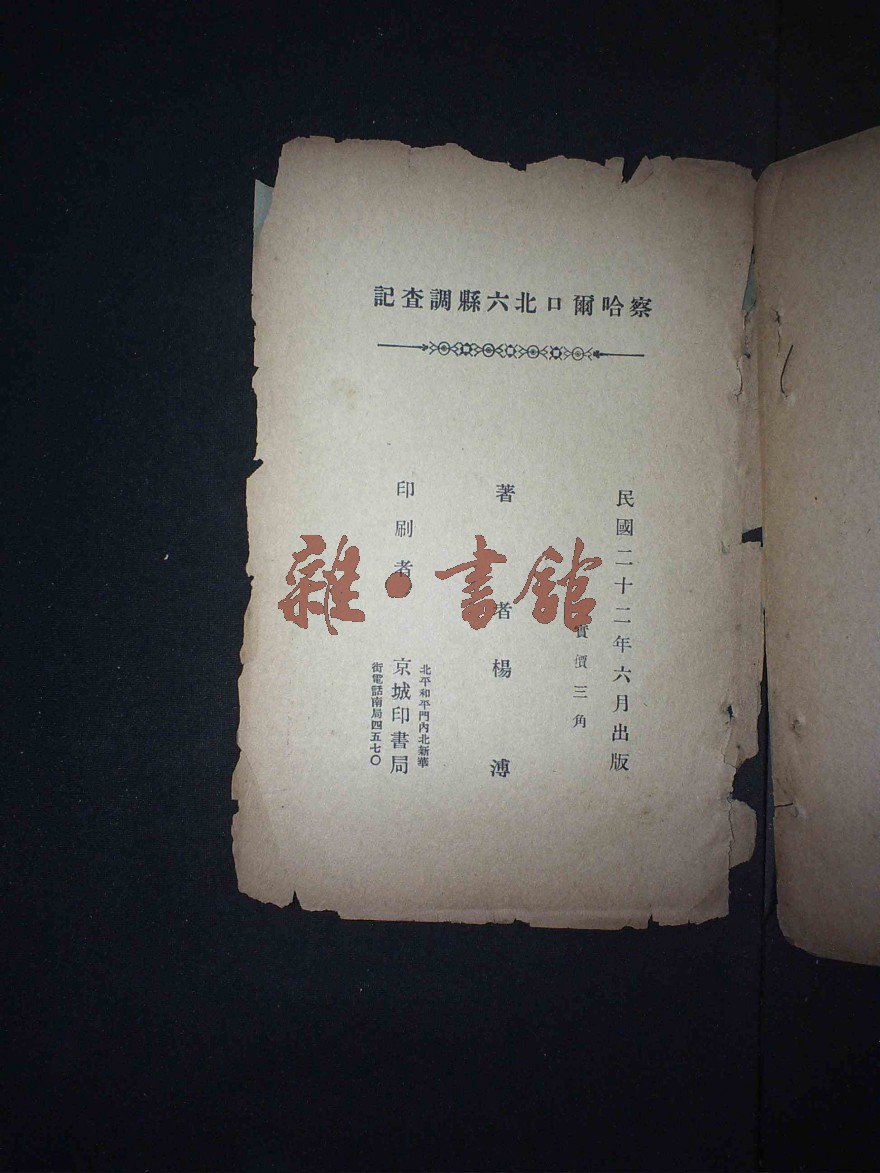 察哈爾口北六縣調查記
民國二十二年六月出版
實價三角
著者楊溥
印刷者
北平和平門內北新華
京城印書局
街電話南局四五七〇
雜·書館